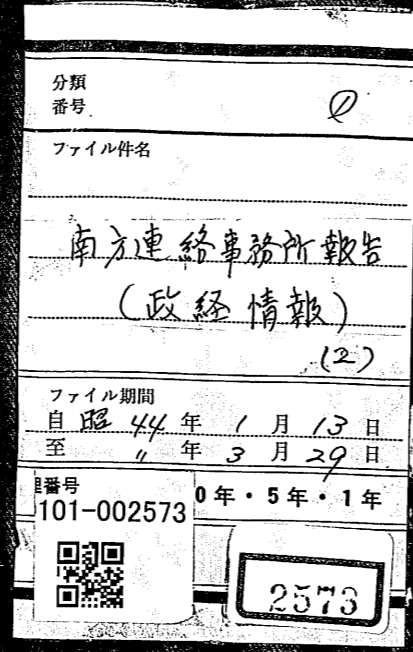 分類
番号
ファイル件名
南方連絡事務所報告
(政経情報)
(2)
ファイル期間
自 昭 44 年 1 月 13 日
至 〃 年 3 月 29 日
理番号
101-002573
0年・5年・1年
2573